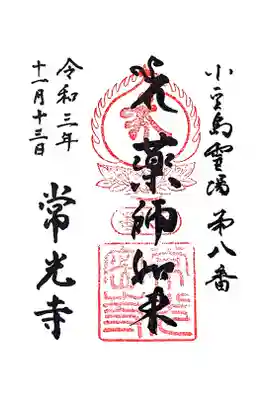 小豆島霊場第八番
薬師如来
常光寺
令和三年
十一月十三日